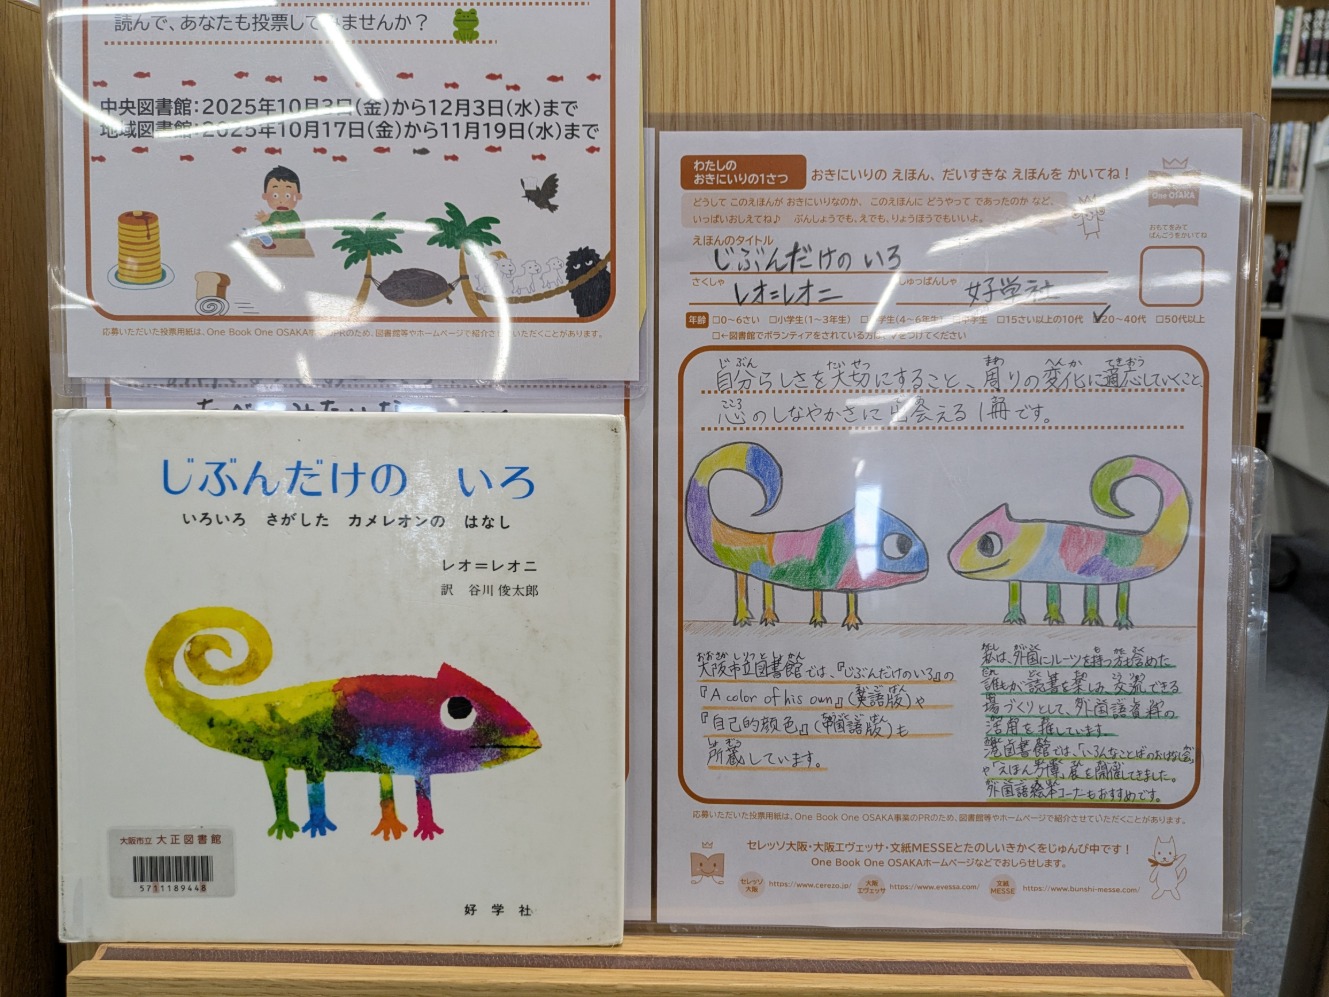 読んで、あなたも投票してみませんか？
中央図書館：2025年10月3日（金）から12月3日（水）まで
地域図書館：2025年10月17日（金）から11月19日（水）まで
じぶんだけの いろ
いろいろ さがした カメレオンの はなし
レオ＝レオニ
訳 谷川俊太郎
大阪市立 大正図書館
5711189448
好学社
わたしの
おきにいりの1さつ
おきにいりの えほん、だいすきな えほんを かいてね！
どうして このえほんが おきにいりなのか、このえほんに どうやって であったのか など、
いっぱいおしえてね♪ ぶんしょうでも、えでも、りょうほうでもいいよ。
One OSAKA
えほんのタイトル
じぶんだけの いろ
さくしゃ
レオ=レオニ
しゅっぱんしゃ
好学社
年齢 □0～6さい □小学生(1～3年生) □小学生(4～6年生) □中学生 □15さい以上の10代 ☑20～40代 □50代以上
自分らしさを大切にすること、周りの変化に適応していくこと、
心のしなやかさに出会える1冊です。
大阪市立図書館では、『じぶんだけのいろ』の
『A color of his own』(英語版)や
『自己的颜色』(中国語版)も
所蔵しています。
私は、外国にルーツを持つ方も含めた
誰もが読書を楽しみ、交流できる
場づくりとして、外国語資料の
活用を推しています。
や「えほん万博」展を開催してきました。
外国語絵本コーナーもおすすめです。
応募いただいた投票用紙は、One Book One OSAKA事業のPRのため、図書館等やホームページで紹介させていただくことがあります。
セレッソ大阪・大阪エヴェッサ・文紙MESSEとたのしいきかくをじゅんび中です！
One Book One OSAKAホームページなどでおしらせします。
セレッソ大阪 https://www.cerezo.jp/ 大阪エヴェッサ https://www.evessa.com/ 文紙MESSE https://www.bunshi-messe.com/